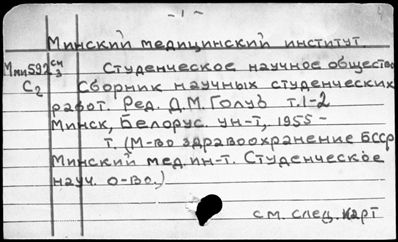 - 1 -
Минский медицинский институт.
Мми592 сн 3 Студенческое научное общество
С2 Сборник научных студенческих
работ. Ред. Д.М. Голуб т.1-2
Минск, Белорус. ун-т, 1955-
т. (М-во здравоохранение БССР
Минский мед. ин-т. Студенческое
науч. о-во.)
см. спец. карт